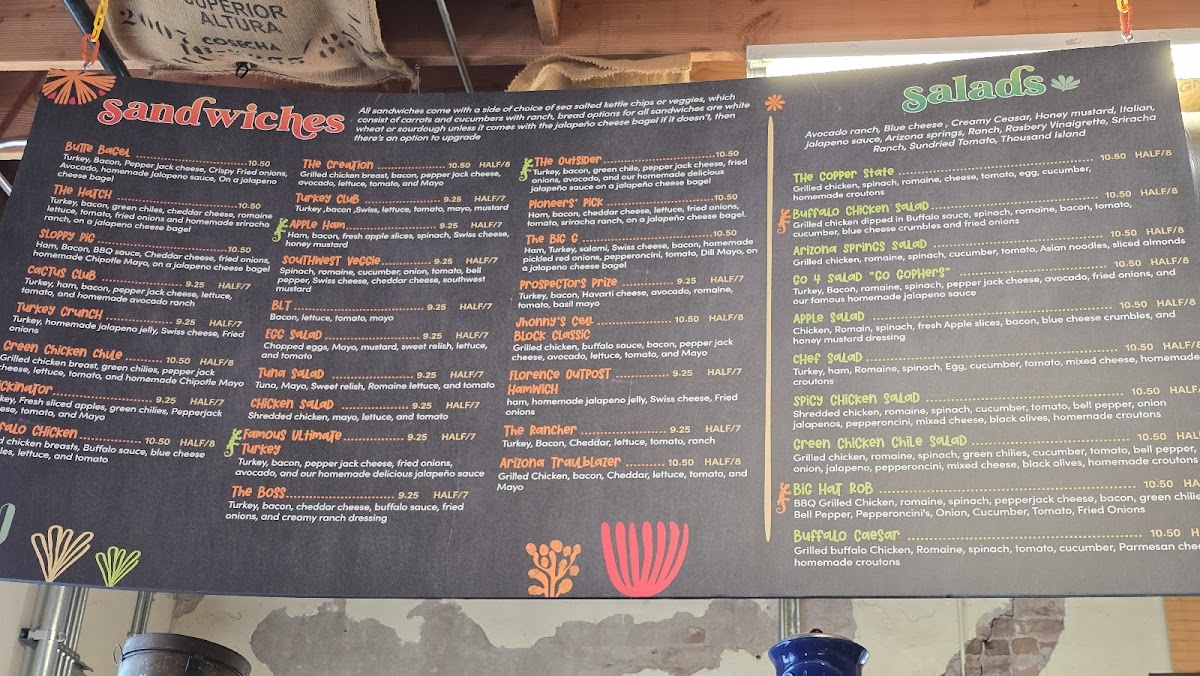 SUPERIOR
ALTURA
COSECHA
Sandwiches
All sandwiches come with a side of choice of sea salted kettle chips or veggies, which
consist of carrots and cucumbers with ranch, bread options for all sandwiches are white
wheat or sourdough unless it comes with the jalapeño cheese bagel if it doesn't, then
there's an option to upgrade
Butte Bagel 10.50
Turkey, Bacon, Pepper Jack cheese, Crispy Fried onions,
Avocado, homemade Jalapeno sauce, On a jalapeno
cheese bagel
The Hatch 10.50
Turkey, bacon, green chiles, cheddar cheese, romaine
lettuce, tomato, fried onions and homemade sriracha
ranch, on a jalapeno cheese bagel
Sloppy Pig 10.50
Ham, Bacon, BBQ sauce, Cheddar cheese, fried onions,
homemade Chipotle Mayo, on a jalapeno cheese bagel
Cactus Club 9.25 HALF/7
Turkey, ham, bacon, pepper jack cheese, lettuce,
tomato, and homemade avocado ranch
Turkey Crunch 9.25 HALF/7
Turkey, homemade jalapeno jelly, Swiss cheese, Fried
onions
Green Chicken Chile 10.50 HALF/8
Grilled chicken breast, green chilies, pepper jack
cheese, lettuce, tomato, and homemade Chipotle Mayo
ickinator 9.25 HALF/7
key, Fresh sliced apples, green chilies, Pepperjack
ese, tomato, and Mayo
falo Chicken 10.50 HALF/8
d chicken breasts, Buffalo sauce, blue cheese
les, lettuce, and tomato
The Creation 10.50 HALF/8
Grilled chicken breast, bacon, pepper jack cheese,
avocado, lettuce, tomato, and Mayo
Turkey Club 9.25 HALF/7
Turkey ,bacon ,Swiss, lettuce, tomato, mayo, mustard
Apple Ham 9.25 HALF/7
Ham, bacon, fresh apple slices, spinach, Swiss cheese,
honey mustard
Southwest Veggie 9.25 HALF/7
Spinach, romaine, cucumber, onion, tomato, bell
pepper, Swiss cheese, cheddar cheese, southwest
mustard
BLT 9.25 HALF/7
Bacon, lettuce, tomato, mayo
Egg Salad 9.25 HALF/7
Chopped eggs, Mayo, mustard, sweet relish, lettuce,
and tomato
Tuna Salad 9.25 HALF/7
Tuna, Mayo, Sweet relish, Romaine lettuce, and tomato
Chicken Salad 9.25 HALF/7
Shredded chicken, mayo, lettuce, and tomato
Famous Ultimate 9.25 HALF/7
Turkey
Turkey, bacon, pepper jack cheese, fried onions,
avocado, and our homemade delicious jalapeño sauce
The Boss 9.25 HALF/7
Turkey, bacon, cheddar cheese, buffalo sauce, fried
onions, and creamy ranch dressing
The Outsider 10.50
Turkey, bacon, green chile, pepper jack cheese, fried
onions, avocado, and our homemade delicious
jalapeño sauce on a jalapeño cheese bagel
Pioneers' Pick 10.50
Ham, bacon, cheddar cheese, lettuce, fried onions,
tomato, sriracha ranch, on a jalapeño cheese bagel.
The Big C 10.50
Ham, Turkey, salami, Swiss cheese, bacon, homemade
pickled red onions, pepperoncini, tomato, Dill Mayo, on
a jalapeno cheese bagel
Prospectors Prize 9.25 HALF/7
Turkey, bacon, Havarti cheese, avocado, romaine,
tomato, basil mayo
Jhonny's Cell 10.50 HALF/8
Block Classic
Grilled chicken, buffalo sauce, bacon, pepper jack
cheese, avocado, lettuce, tomato, and Mayo
Florence Outpost 9.25 HALF/7
Hamwich
ham, homemade jalapeno jelly, Swiss cheese, Fried
onions
The Rancher 9.25 HALF/7
Turkey, Bacon, Cheddar, lettuce, tomato, ranch
Arizona Trailblazer 10.50 HALF/8
Grilled Chicken, bacon, Cheddar, lettuce, tomato, and
Mayo
Salads
Avocado ranch, Blue cheese , Creamy Ceasar, Honey mustard, Italian,
jalapeno sauce, Arizona springs, Ranch, Rasbery Vinaigrette, Sriracha
Ranch, Sundried Tomato, Thousand Island
The Copper State 10.50 HALF/8
Grilled chicken, spinach, romaine, cheese, tomato, egg, cucumber,
homemade croutons
Buffalo Chicken Salad 10.50 HALF/8
Grilled chicken dipped in Buffalo sauce, spinach, romaine, bacon, tomato,
cucumber, blue cheese crumbles and fried onions
Arizona Springs Salad 10.50 HALF/8
Grilled chicken, romaine, spinach, cucumber, tomato, Asian noodles, sliced almonds
Go 4 Salad "Go Gophers" 10.50 HALF/8
Turkey, Bacon, romaine, spinach, pepper jack cheese, avocado, fried onions, and
our famous homemade jalapeno sauce
Apple Salad 10.50 HALF/8
Chicken, Romain, spinach, fresh Apple slices, bacon, blue cheese crumbles, and
honey mustard dressing
Chef Salad 10.50 HALF/8
Turkey, ham, Romaine, spinach, Egg, cucumber, tomato, mixed cheese, homemade
croutons
Spicy Chicken Salad 10.50 HALF/8
Shredded chicken, romaine, spinach, cucumber, tomato, bell pepper, onion
jalapenos, pepperoncini, mixed cheese, black olives, homemade croutons
Green Chicken Chile Salad 10.50 HAL
Grilled chicken, romaine, spinach, green chilies, cucumber, tomato, bell pepper,
onion, jalapeno, pepperoncini, mixed cheese, black olives, homemade croutons
Big Hat Rob 10.50 HA
BBQ Grilled Chicken, romaine, spinach, pepperjack cheese, bacon, green chilie
Bell Pepper, Pepperoncini's, Onion, Cucumber, Tomato, Fried Onions
Buffalo Caesar 10.50 H
Grilled buffalo Chicken, Romaine, spinach, tomato, cucumber, Parmesan chee
homemade croutons